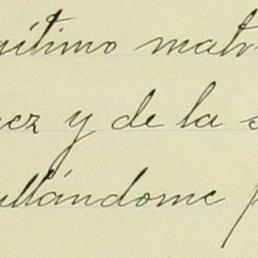 gítimo matr
ez y de la
llándome